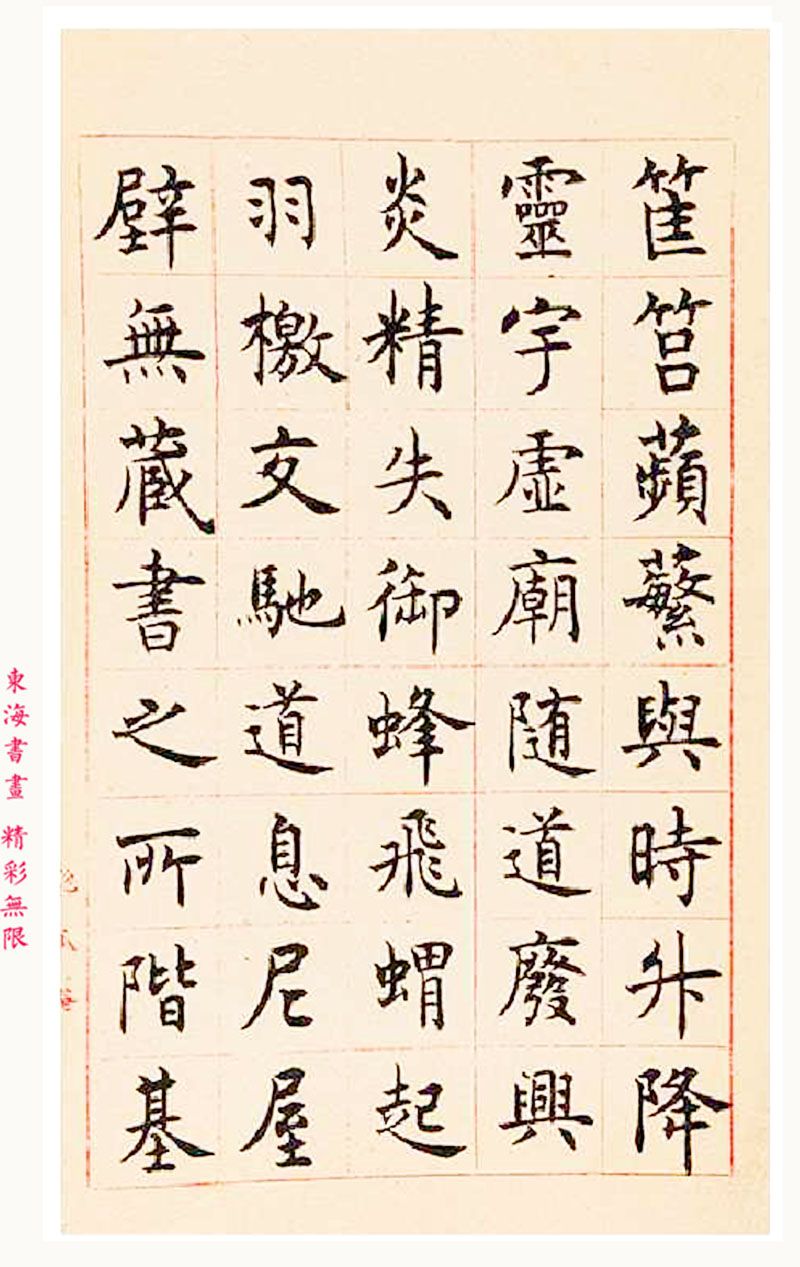 筐筥蘋蘩與時升降
靈宇虛廟隨道廢興
炎精失御蜂飛蝟起
羽檄交馳道息尼屋
壁無藏書之所階基
東海書畫 精彩無限